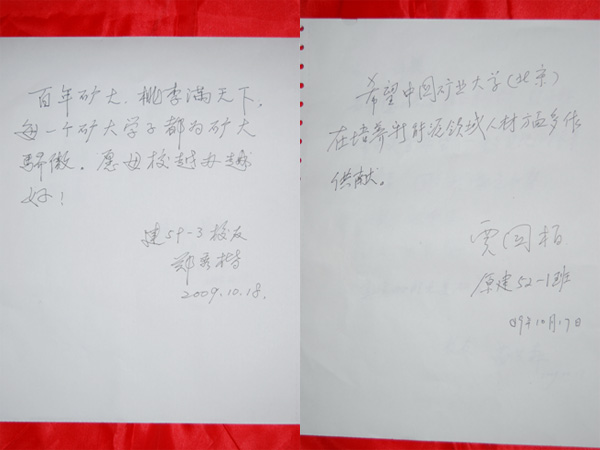 百年矿大,桃李满天下,
每一个矿大学子都为矿大
骄傲。愿母校越办越
好!
建59-3校友
2009.10.18.
希望中国矿业大学(北京)
在培养新能源领域人材方面多作
供献。
贾国栢
原建52-1班
09年10月17日